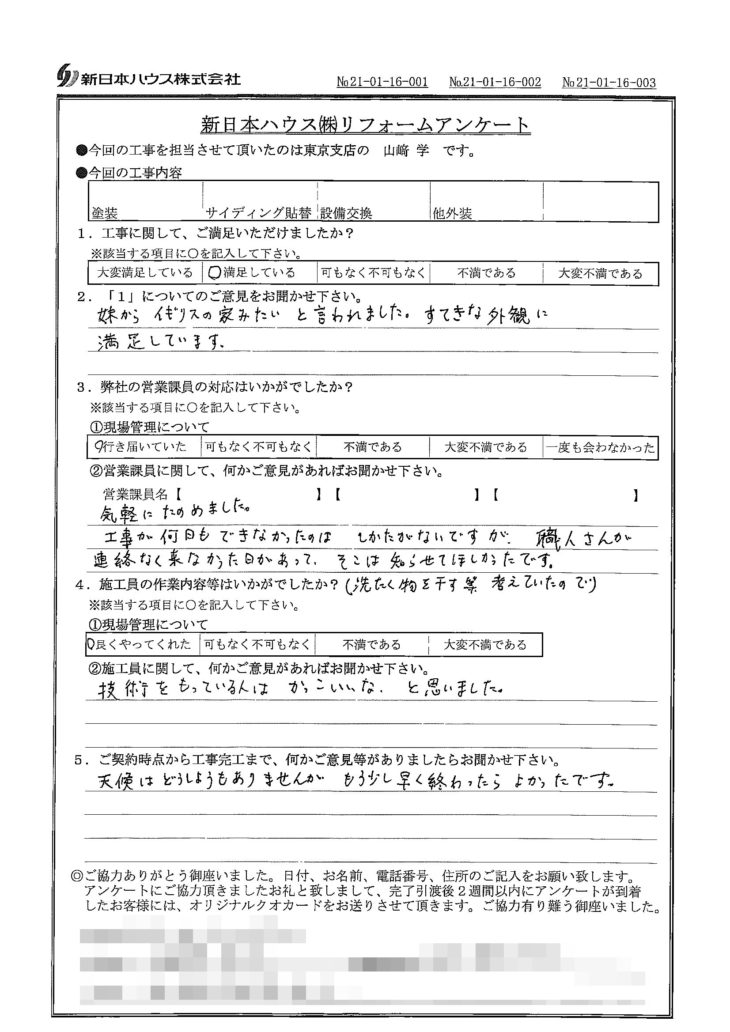 新日本ハウス株式会社 №21-01-16-001 №21-01-16-002 №21-01-16-003
新日本ハウス㈱リフォームアンケート
●今回の工事を担当させて頂いたのは東京支店の 山﨑 学 です。
●今回の工事内容
塗装 サイディング貼替 設備交換 他外装
1．工事に関して、ご満足いただけましたか？
※該当する項目に○を記入して下さい。
大変満足している ○満足している 可もなく不可もなく 不満である 大変不満である
2．「1」についてのご意見をお聞かせ下さい。
妹から イギリスの家みたい と言われました。すてきな外観に
満足しています。
3．弊社の営業課員の対応はいかがでしたか？
※該当する項目に○を記入して下さい。
①現場管理について
○行き届いていた 可もなく不可もなく 不満である 大変不満である 一度も会わなかった
②営業課員に関して、何かご意見があればお聞かせ下さい。
営業課員名【 】【 】【 】
気軽にたのめました。
工事が何日もできなかったのは しかたがないですが、職人さんが
連絡なく来なかった日があって、そこは知らせてほしかったです。
4．施工員の作業内容等はいかがでしたか？(洗たく物を干す等 考えていたので)
※該当する項目に○を記入して下さい。
①現場管理について
○良くやってくれた 可もなく不可もなく 不満である 大変不満である
②施工員に関して、何かご意見があればお聞かせ下さい。
技術をもっている人は かっこいいな、と思いました。
5．ご契約時点から工事完工まで、何かご意見等がありましたらお聞かせ下さい。
天候はどうしようもありませんが もう少し早く終わったら よかったです。
◎ご協力ありがとう御座いました。日付、お名前、電話番号、住所のご記入をお願い致します。
アンケートにご協力頂きましたお礼と致しまして、完了引渡後2週間以内にアンケートが到着
したお客様には、オリジナルクオカードをお送りさせて頂きます。ご協力有り難う御座いました。